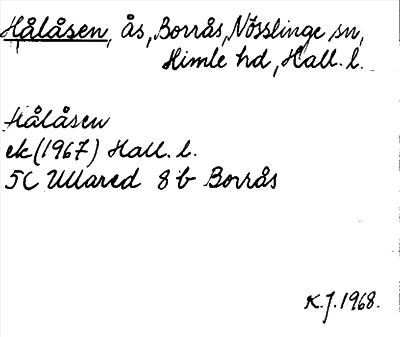 Hålåsen, ås, Borrås, Nösslinge sn,
Himle hd, Hall. l.
Hålåsen
ek (1967) Hall. l.
5C Ullared 8 b Borrås
K.J. 1968.